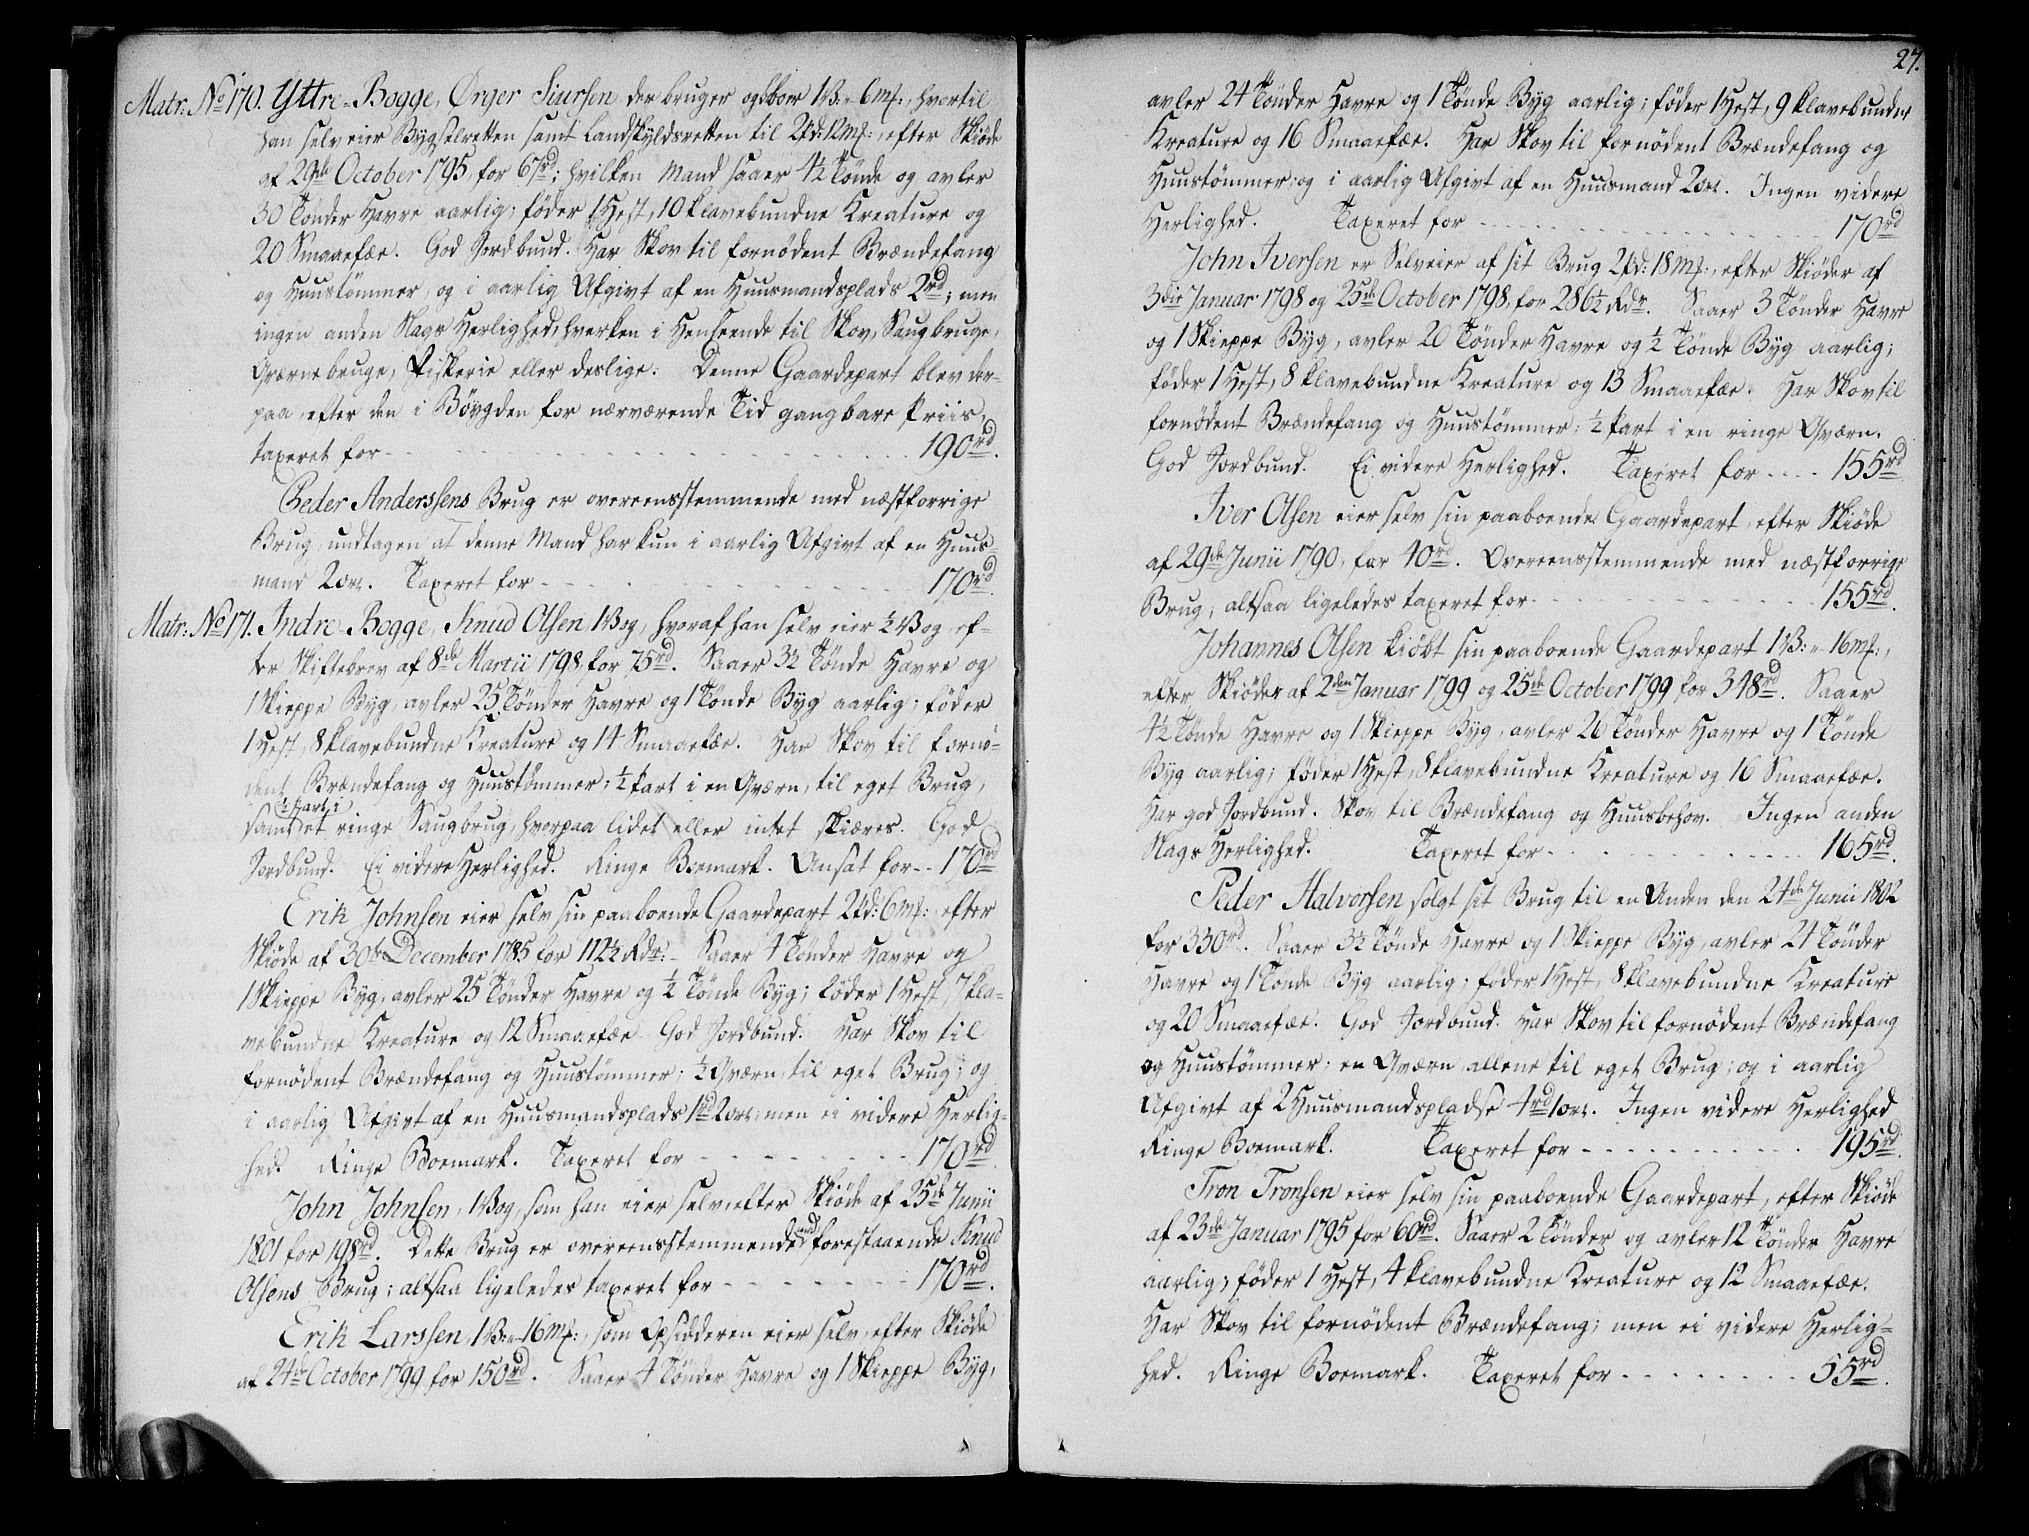 Matr: No 170. Yttre-Bogge, Ørger Siursen, der bruger og boer 1 B: - 6 mf:, hvortil
han selv eier Bygselretten samt Landskyldsretten til 2 pd: 12 mf:, efter Skiøde
af 29de October 1795 for 67 rd; hvilken Mand saaer 4½ Tønde og avler
30 Tønder Havre aarlig; føder 1 Hest, 10 klavebundne Kreature og
20 Smaaefæe. God Jordbund. Har Skov til fornødent Brændefang
og Huustømmer, og i aarlig Afgivt af en Huusmandsplads 2 rd; men
ingen anden Slags Herlighed, hverken i Henseende til Skov, Saugbruge,
Qværnebruge, Fiskerie eller deslige. Denne Gaardepart blev der-
paa, efter den i Bøygden for nærværende Tid gangbare Priis,
taxeret for - - - 190 rd.
Peder Anderssens Brug er overeensstemmende med næstforrige
Brug, undtagen at denne Mand har kun i aarlig Afgivt af en Huus-
mand 2 ort. Taxeret for - - - 170 rd.
Matr: No 171. Indre-Bogge, Knud Olsen 1 Vog, hvoraf han selv eier ½ Vog, ef-
ter Skiftebrev af 8de Martii 1798 for 75 rd. Saaer 3½ Tønde Havre og
1 Skieppe Byg, avler 25 Tønder Havre og 1 Tønde Byg aarlig; føder
1 Hest, 8 klavebundne Kreature og 14 Smaaefæe. Har Skov til fornø-
dent Brændefang og Huustømmer; ½ Part i en Qværn, til eget Brug,
½ Part i
samt et ringe Saugbrug, hvorpaa lidet eller intet skiæres. God
Jordbund. Ei videre Herlighed. Ringe Boemark. Ansat for - - 170 rd
Erik Johnsen eier selv sin paaboende Gaardepart 2 pd: 6 mf:, efter
Skiøde af 30te December 1785 for 112½ Rdr: - Saaer 4 Tønder Havre og
1 Skieppe Byg, avler 25 Tønder Havre og ½ Tønde Byg; føder 1 Hest, 7 kla-
vebundne Kreature og 12 Smaaefæe. God Jordbund. Har Skov til
fornødent Brændefang og Huustømmer; ½ Qværn til eget Brug; og
i aarlig Afgivt af en Huusmandsplads 1 rd 2 ort; men ei videre Herlig-
hed. Ringe Boemark. Taxeret for - - - 170 rd
John Johnsen, 1 Vog, som han eier selv, efter Skiøde af 25de Junii
1801 for 198 rd. Dette Brug er overeensstemmende med forestaaende Knud
Olsens Brug; altsaa ligeledes taxeret for - - - 170 rd.
Erik Larssen, 1 B: - 16 mf:, som Opsidderen eier selv, efter Skiøde
af 24de October 1799 for 150 rd. Saaer 4 Tønder Havre og 1 Skieppe Byg,
27.
avler 24 Tønder Havre og 1 Tønde Byg aarlig; føder 1 Hest, 9 klavebundne
Kreature og 16 Smaaefæe. Har Skov til fornødent Brændefang og
Huustømmer; og i aarlig Afgivt af en Huusmand 2 ort. Ingen videre
Herlighed. Taxeret for - - - 170 rd
John Iversen er Selveier af sit Brug 2 pd: 18 mf:, efter Skiøder af
3die Januar 1798 og 25de October 1798, for 286½ Rdr. Saaer 3 Tønder Havre
og 1 Skieppe Byg, avler 20 Tønder Havre og ½ Tønde Byg aarlig;
føder 1 Hest, 8 klavebundne Kreature og 13 Smaaefæe. Har Skov til
fornødent Brændefang og Huustømmer; ½ Part i en ringe Qværn.
God Jordbund. Ei videre Herlighed. Taxeret for - - - 155 rd
Iver Olsen eier selv sin paaboende Gaardepart, efter Skiøde
af 29de Junii 1790, for 40 rd. Overeensstemmende med næstforrige
Brug, altsaa ligeledes taxeret for - - - 155 rd.
Johannes Olsen kiøbt sin paaboende Gaardepart 1 B: - 16 mf:,
efter Skiøder af 2den Januar 1799 og 25de October 1799 for 348 rd. Saaer
4½ Tønde Havre og 1 Skieppe Byg, avler 26 Tønder Havre og 1 Tønde
Byg aarlig; føder 1 Hest, 8 klavebundne Kreature og 16 Smaaefæe.
Har god Jordbund. Skov til Brændefang og Huusbehov. Ingen anden
Slags Herlighed. Taxeret for - - - 165 rd.
Peder Halvorsen solgt sit Brug til en Anden den 24de Junii 1802
for 330 rd. Saaer 3½ Tønde Havre og 1 Skieppe Byg, avler 24 Tønder
Havre og 1 Tønde Byg aarlig; føder 1 Hest, 8 klavebundne Kreature
og 20 Smaaefæe. God Jordbund. Har Skov til fornødent Brændefang
og Huustømmer; en Qværn allene til eget Brug; og i aarlig
Afgivt af 2 Huusmandspladse 4 rd 1 ort. Ingen videre Herlighed
Ringe Boemark. Taxeret for - - - 195 rd.
Tron Tronsen eier selv sin paaboende Gaardepart, efter Skiøde
af 23de Januar 1795 for 60 rd. Saaer 2 Tønder og avler 12 Tønder Havre
aarlig; føder 1 Hest, 4 klavebundne Kreature og 12 Smaaefæe.
Har Skov til fornødent Brændefang; men ei videre Herlig-
hed. Ringe Boemark. Taxeret for - - - 55 rd.